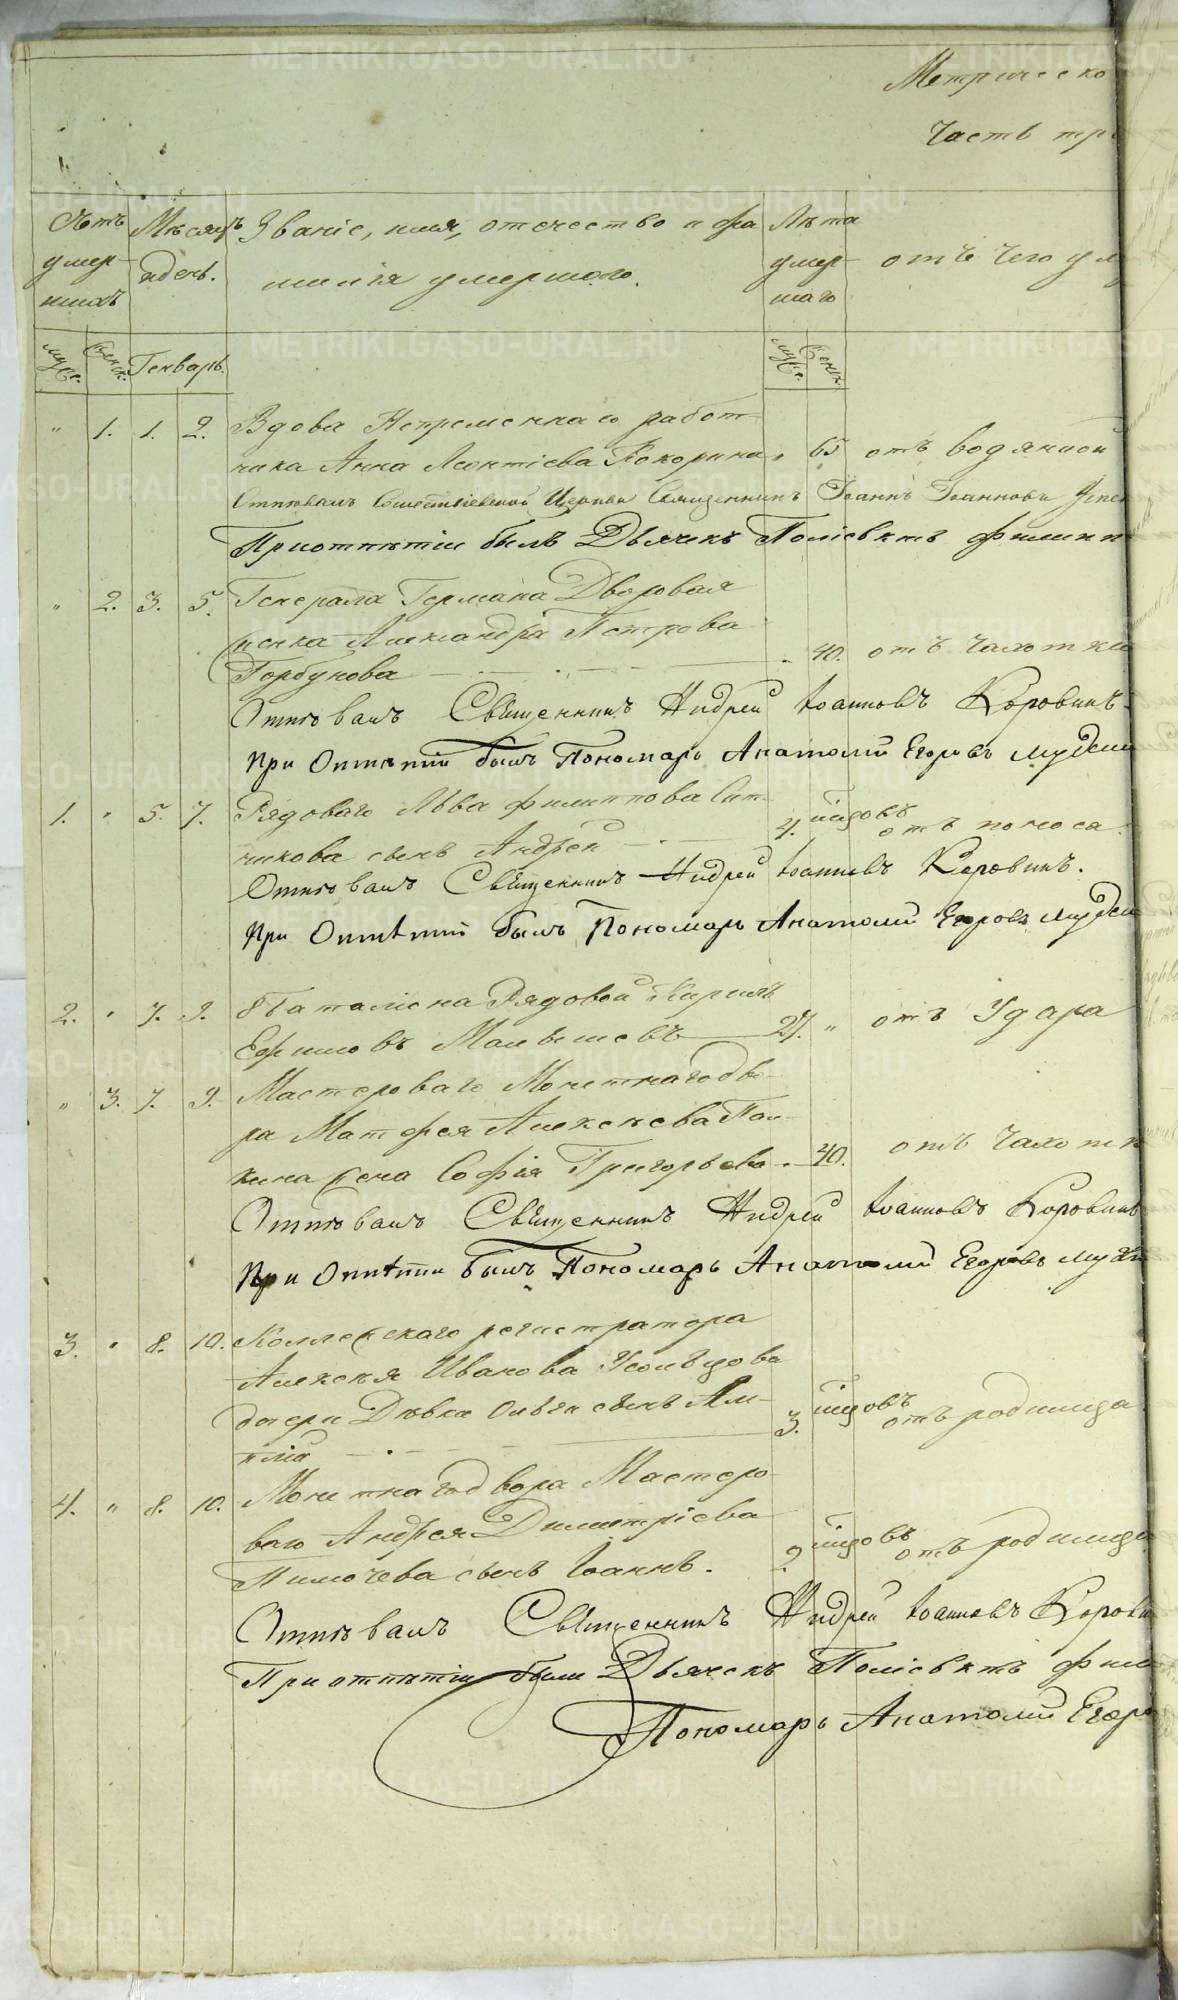 Метрическо
Часть тре
Счетъ умер- шихъ
Мѣсяцъ и день.
Званіе, имя, отечество и фа милія умершаго.
Лѣта умер- шаго
отъ чего ум
муж. женск. Генварь. муж. женск.
" 1. 1. 2. Вдова Непременнаго работ-
ника Анна Леонтіева Кокорина " 65 отъ водяной
Отпѣвалъ Священникъ Іоаннъ Іоанновъ
При отпѣтіи былъ Дьячекъ Поліевктъ Филипп
" 2. 3. 5. Генерала Германа Дворовая
женка Александра Петрова
Горбунова " 40. отъ чахотки
Отпѣвалъ Священникъ Андрей Іоанновъ Коровинъ.
При Отпѣтіи былъ Пономарь Анатолій Егоровъ
1. " 5. 7. Рядоваго Льва Филиппова Сит-
никова сынъ Андрей 4. мѣсяцовъ отъ поноса.
Отпѣвалъ Священникъ Андрей Іоанновъ Коровинъ.
При Отпѣтіи былъ Пономарь Анатолій Егоровъ
2. " 7. 9. 8 Баталіона Рядовой Кирилъ
Ефимовъ Малышевъ 27. " отъ Удара
" 3. 7. 9. Мастероваго Монетнаго дво-
ра Матфея Алексѣева Пол-
кина жена Софія Григорьева " 40. отъ Чахотк
Отпѣвалъ Священникъ Андрей Іоанновъ Коровинъ
При Отпѣтіи былъ Пономарь Анатолій Егоровъ
3. " 8. 10. Коллежскаго регистратора
Алексѣя Иванова Усольцова
дочери Дѣвки Ольги сынъ
3. мѣсяцовъ отъ родимца.
4. " 8. 10. Монетнаго двора Мастеро-
ваго Андрея Димитріева
Пимочева сынъ Іоаннъ. 2. мѣсяцовъ отъ родимца
Отпѣвалъ Священникъ Андрей Іоанновъ Корови
При отпѣтіи были Дьячекъ Поліевктъ Фили
Пономарь Анатолій Егоро
METRIKI.GASO-URAL.RU